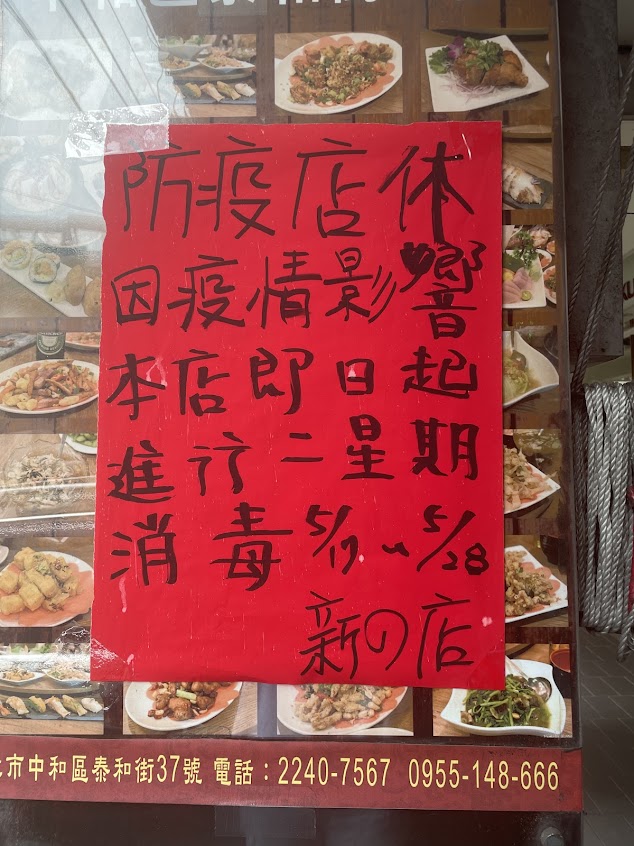 防疫店休
因疫情影響
本店即日起
進行二星期
消毒 5/17~5/28
新の店
市中和區泰和街37號 電話：2240-7567 0955-148-666